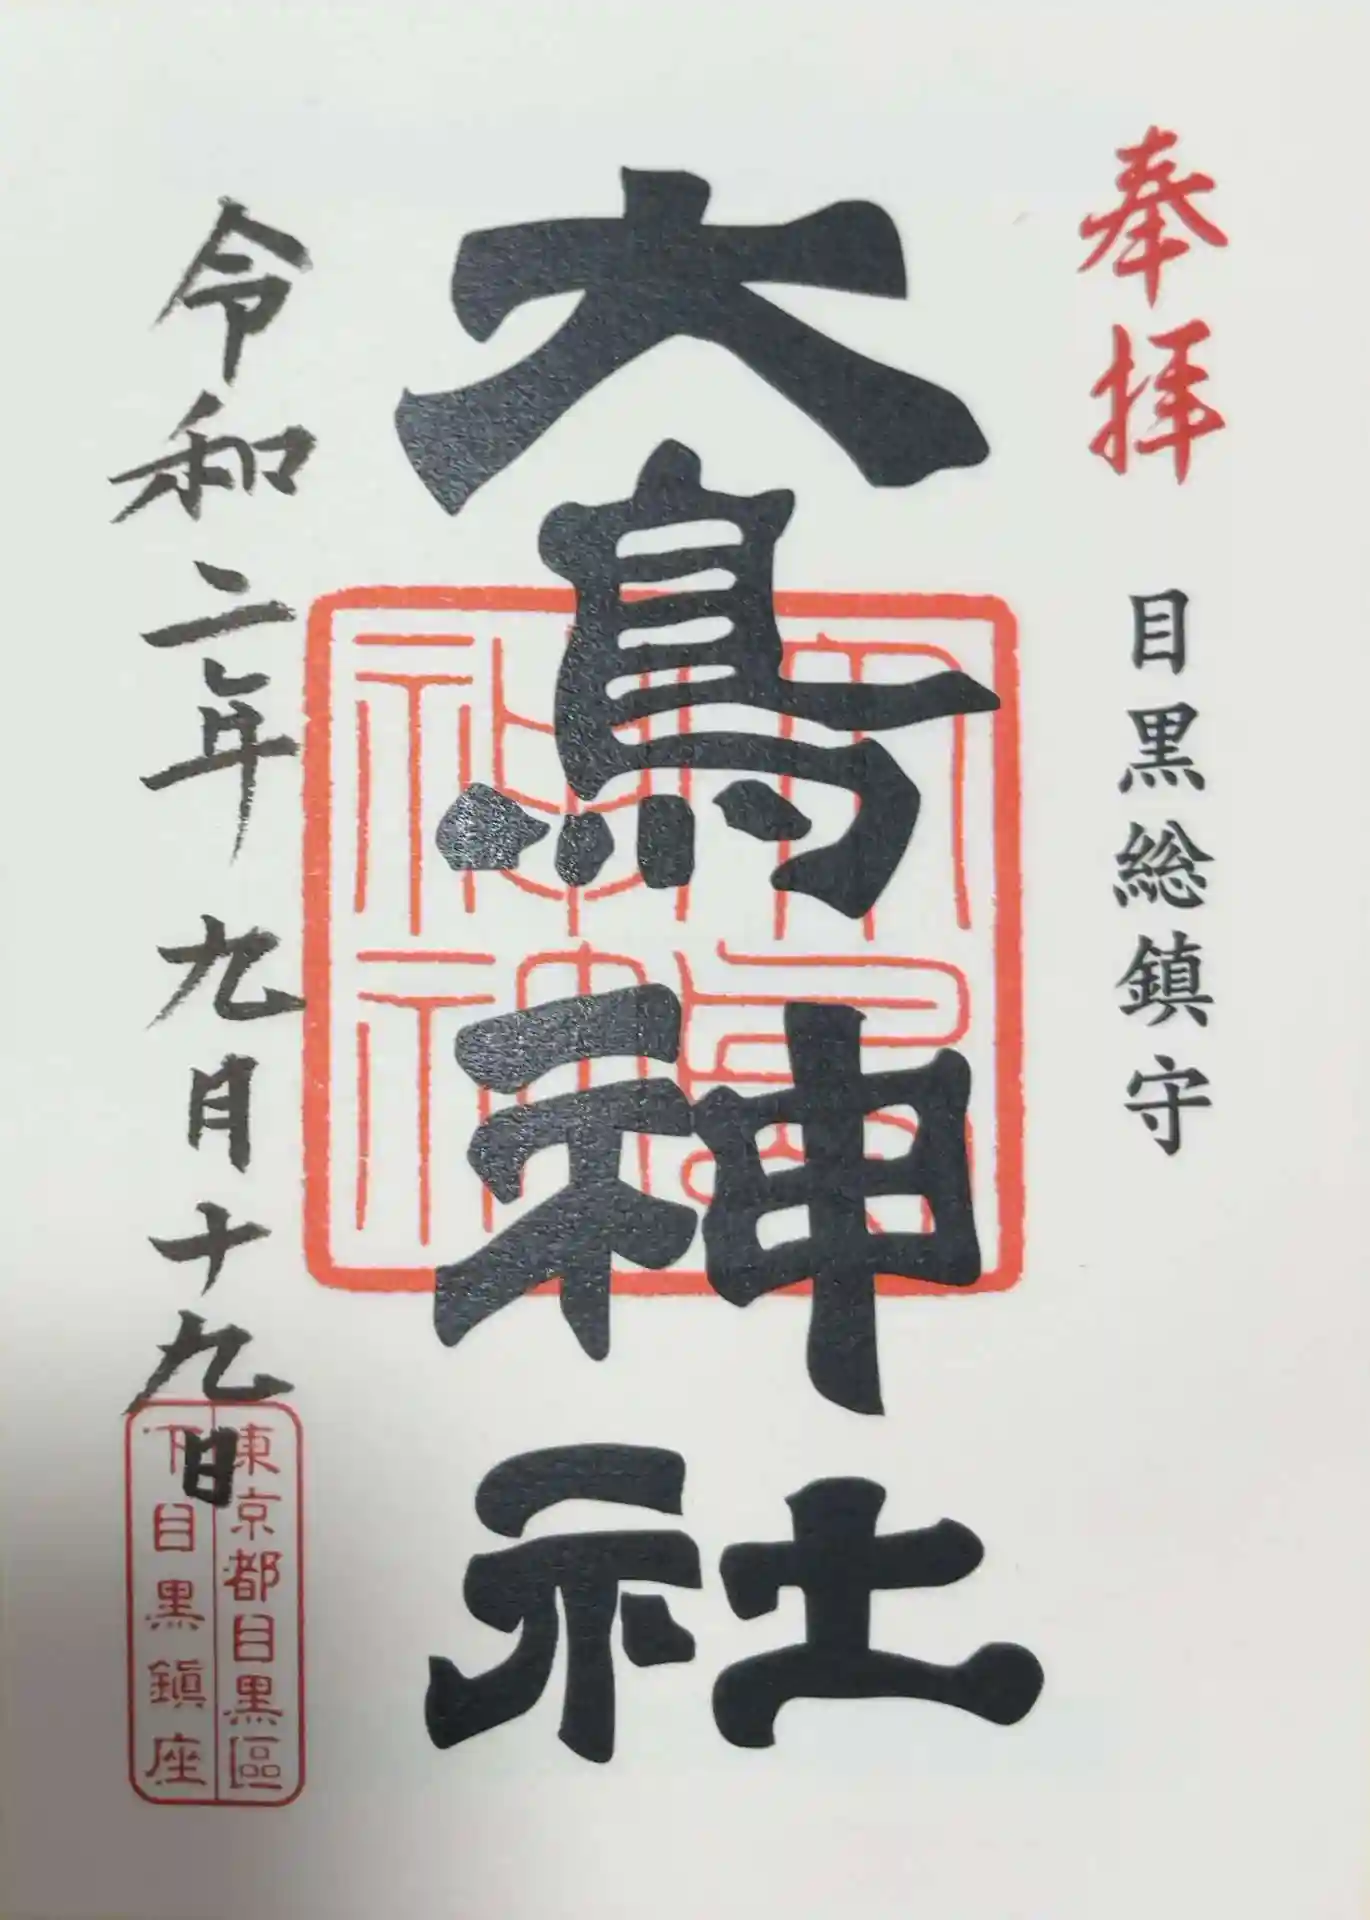 奉拝
目黒総鎮守
大鳥神社
大鳥
神社
令和二年九月十九日
東京都目黒區
下目黒鎮座